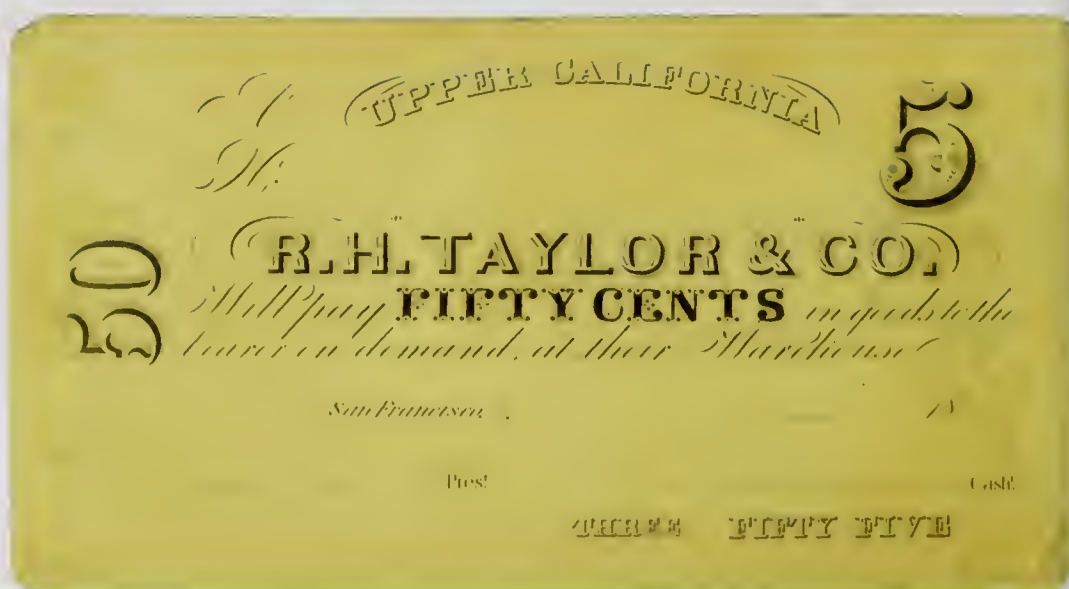 UPPER CALIFORNIA
5
No.
50
R.H. TAYLOR & CO.
Will Pay FIFTY CENTS in goods to the
bearer on demand, at their Warehouse
San Francisco,
Prest
Cash!
THREE FIFTY FIVE